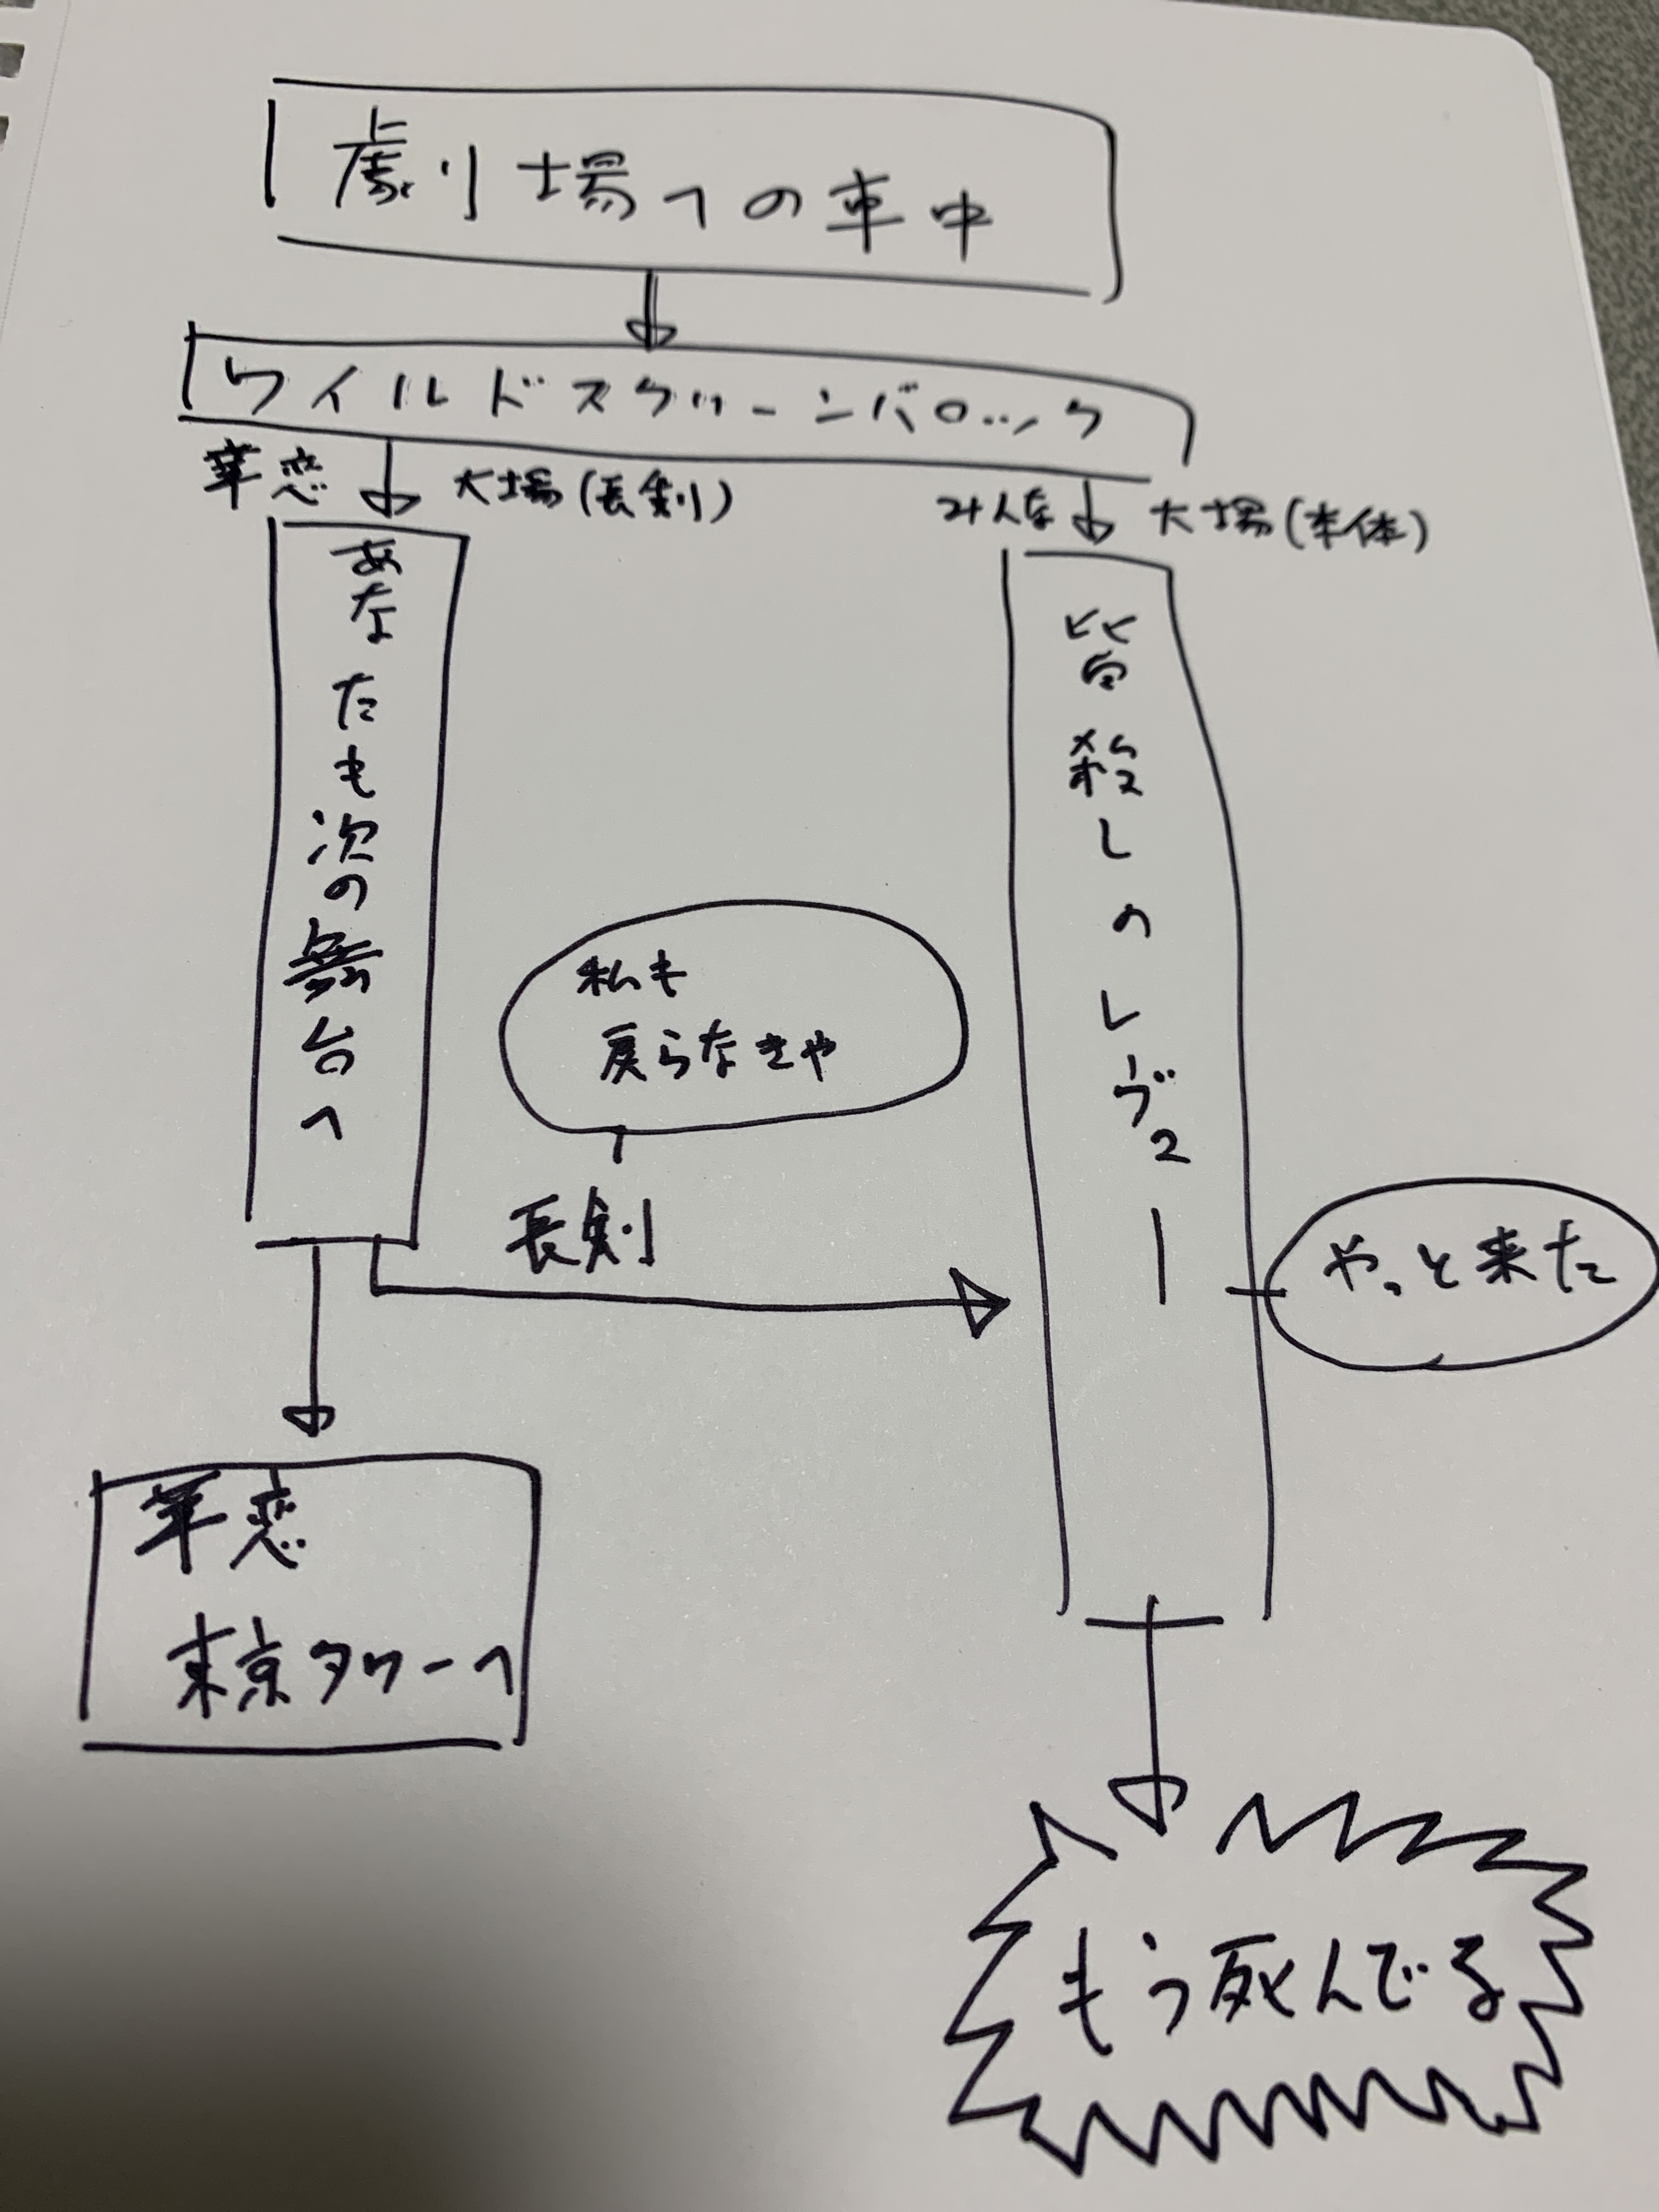 劇場への車中
ワイルドスクリーンバロック
華恋
大場(長剣)
みんな
大場(本体)
あなたも次の舞台へ
皆殺しのレヴュー
私も
戻らなきゃ
長剣
やっと来た
華恋
東京タワーへ
もう死んでる